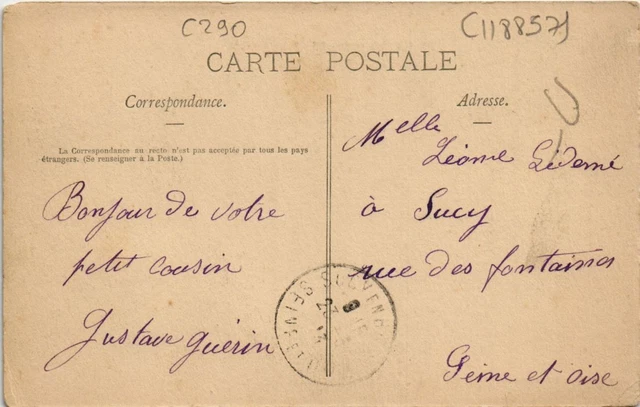 C290
C118857
CARTE POSTALE
Correspondance.
La Correspondance au recto n'est pas acceptée par tous les pays
étrangers. (Se renseigner à la Poste.)
Bonjour de votre
petit cousin
Gustave Guérin
Adresse.
Melle
à Sucy
rue des fontaines
Seine et Oise